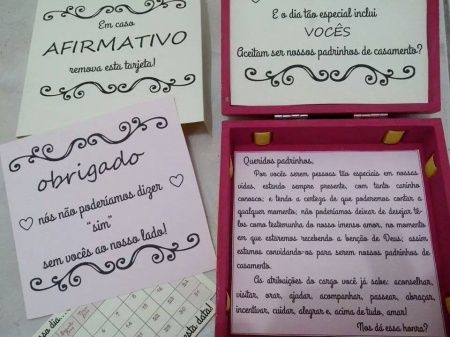 Em caso
AFIRMATIVO
remova esta tarjeta!
E o dia tão especial inclui
VOCÊS
Aceitam ser nossos padrinhos de casamento?
obrigado
nós não poderíamos dizer
"sim"
sem vocês ao nosso lado!
Queridos padrinhos,
Por vocês serem pessoas tão especiais em nossas
vidas, estando sempre presente, com tanto carinho
conosco; e tendo a certeza de que poderemos contar a
qualquer momento; não poderíamos deixar de desejar tê-
los como testemunha do nosso imenso amor, no momento
em que estaremos recebendo a benção de Deus; assim
estamos convidando-os para serem nossos padrinhos de
casamento.
As atribuições do cargo você já sabe: aconselhar,
visitar, orar, ajudar, acompanhar, passear, abraçar,
incentivar, cuidar, alegrar e, acima de tudo, amar!
Nos dá essa honra?
dia...
esta data!